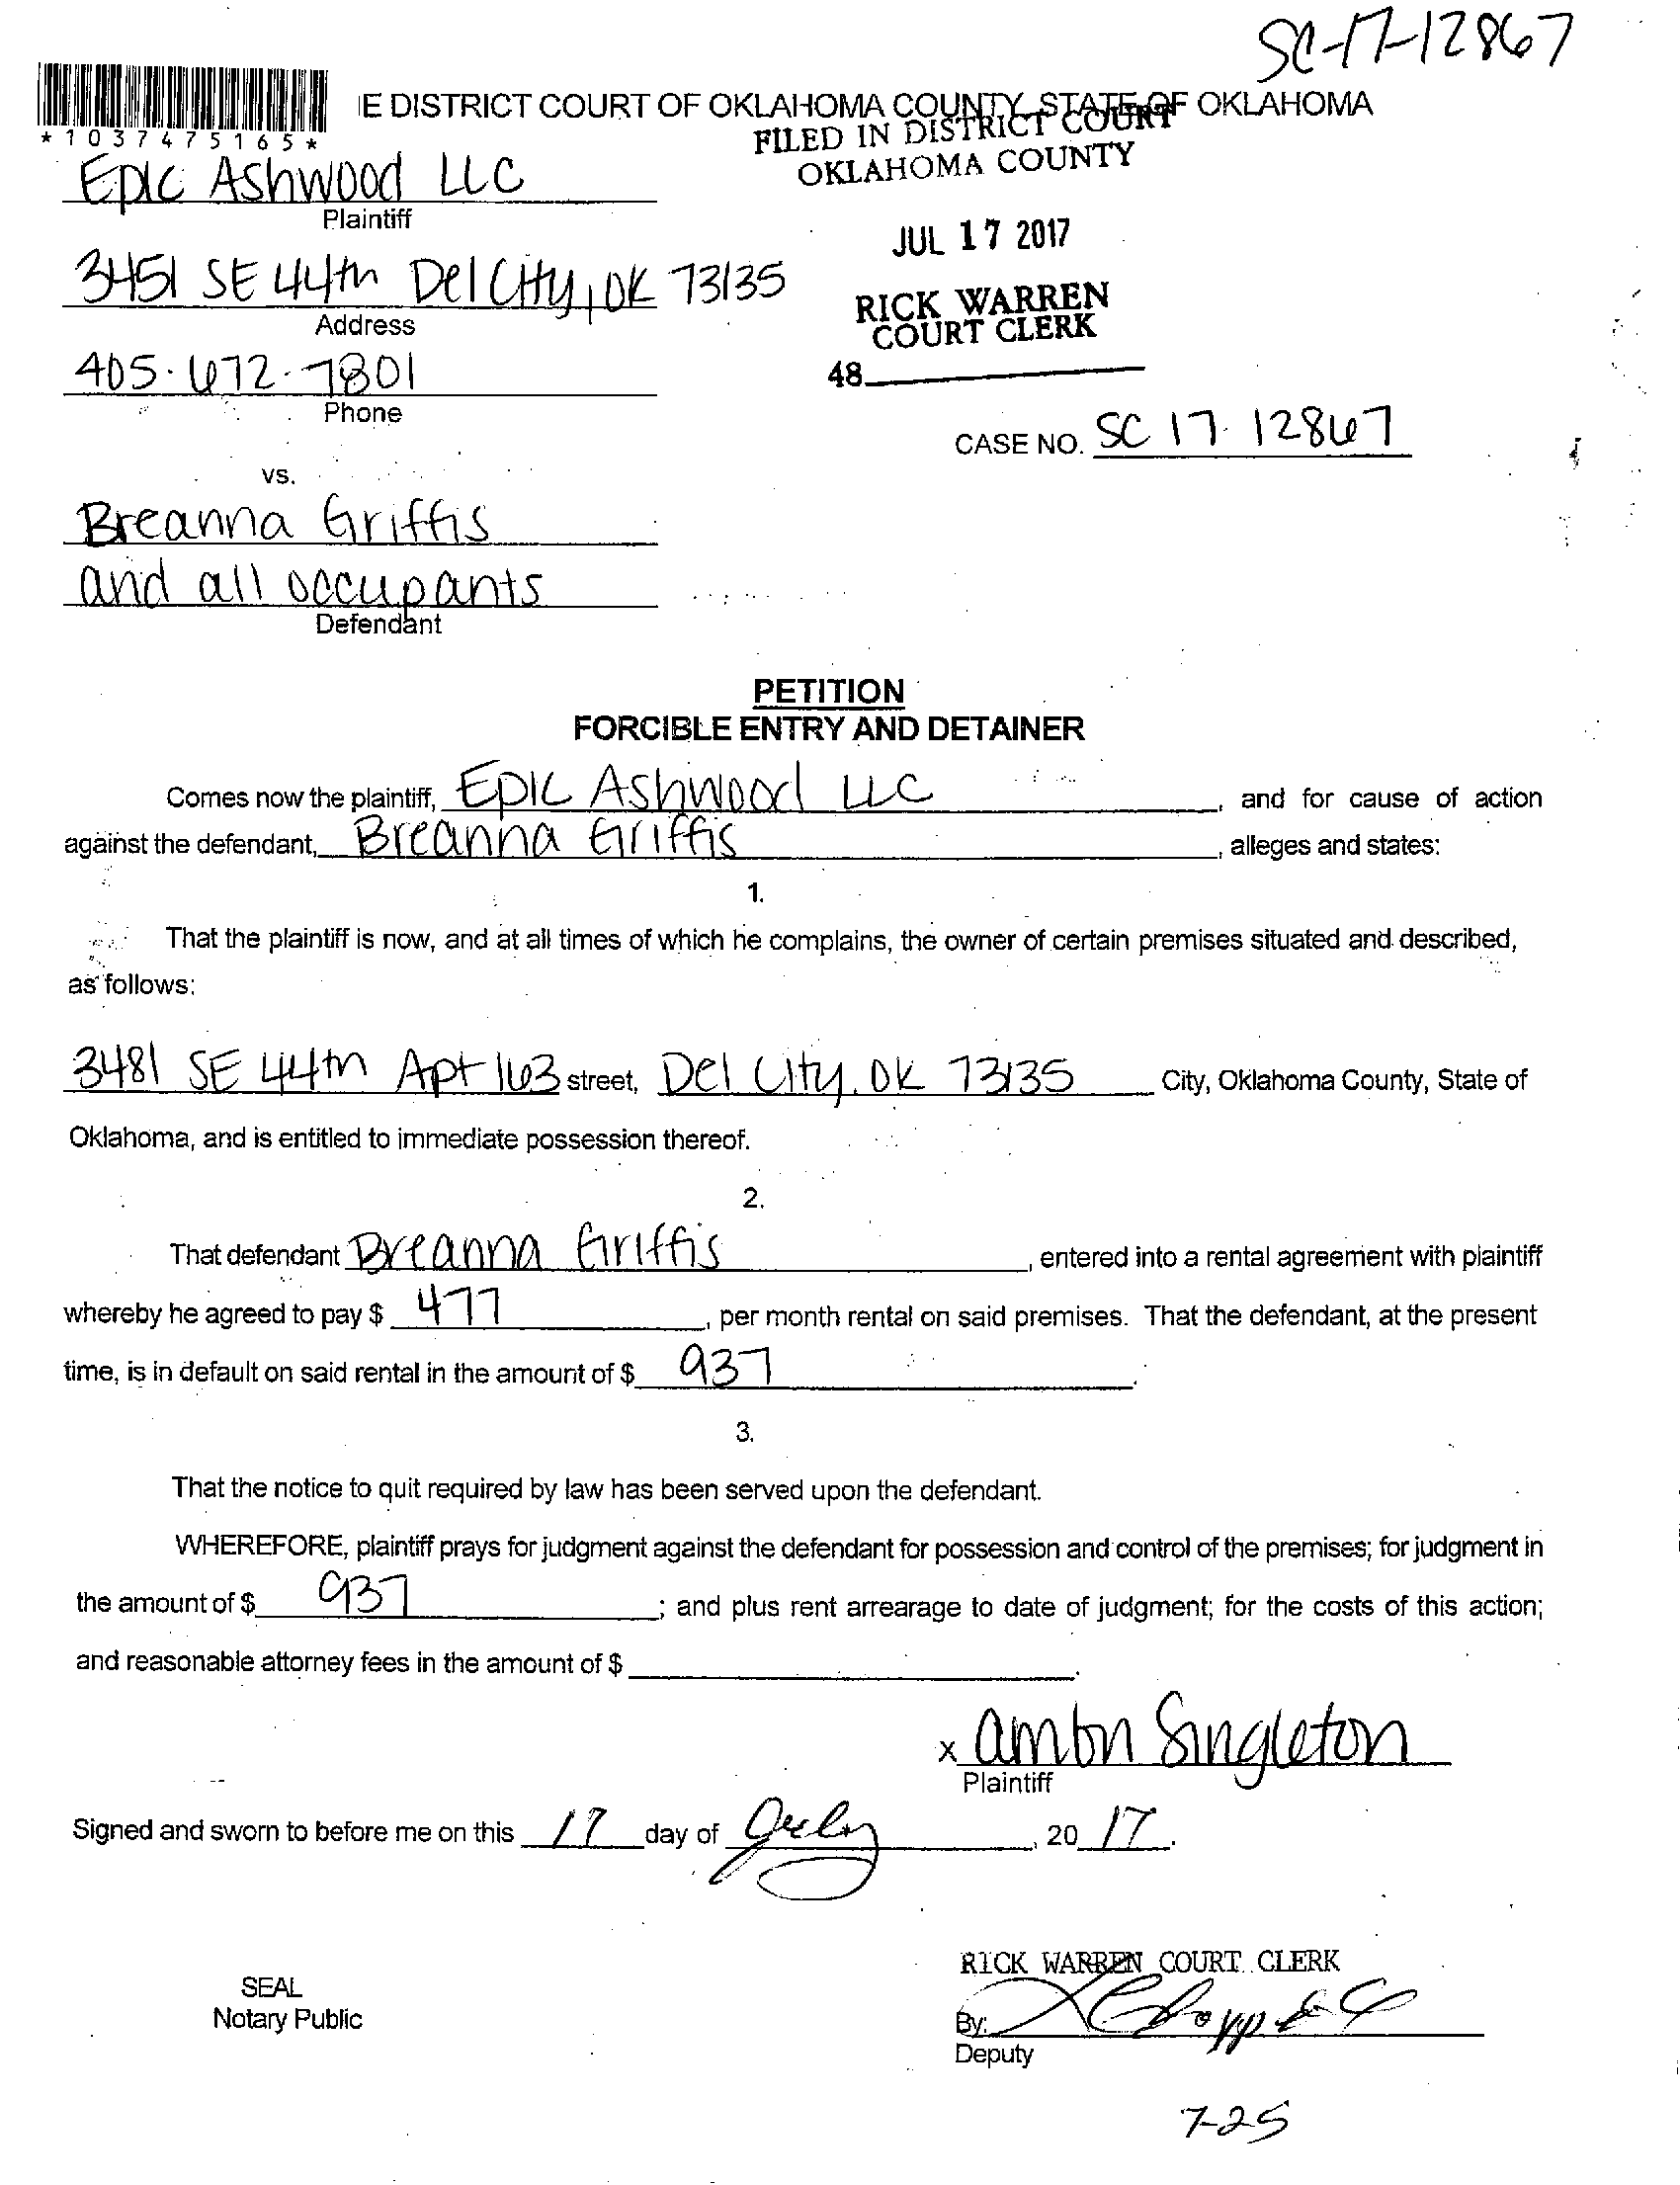 SC-17-12867
E DISTRICT COURT OF OKLAHOMA COUNTY, STATE OF OKLAHOMA
*1037475165*
FILED IN DISTRICT COURT
OKLAHOMA COUNTY
Epic Ashwood LLC
Plaintiff
JUL 17 2017
3451 SE 44th Del City, OK 73135
Address
RICK WARREN
COURT CLERK
405-672-7801
Phone
48
CASE NO. SC 17-12867
vs.
Breanna Griffis
and all occupants
Defendant
PETITION
FORCIBLE ENTRY AND DETAINER
Comes now the plaintiff, Epic Ashwood LLC, and for cause of action
against the defendant, Breanna Griffis, alleges and states:
1.
That the plaintiff is now, and at all times of which he complains, the owner of certain premises situated and described,
as follows:
3481 SE 44th Apt 163 street, Del City, OK 73135 City, Oklahoma County, State of
Oklahoma, and is entitled to immediate possession thereof.
2.
That defendant Breanna Griffis, entered into a rental agreement with plaintiff
whereby he agreed to pay $ 477, per month rental on said premises. That the defendant, at the present
time, is in default on said rental in the amount of $ 937.
3.
That the notice to quit required by law has been served upon the defendant.
WHEREFORE, plaintiff prays for judgment against the defendant for possession and control of the premises; for judgment in
the amount of $ 937; and plus rent arrearage to date of judgment; for the costs of this action;
and reasonable attorney fees in the amount of $
x Singleton
Plaintiff
Signed and sworn to before me on this 17 day of July, 20 17.
RICK WARREN COURT CLERK
SEAL
Notary Public
By:
Deputy
7-25